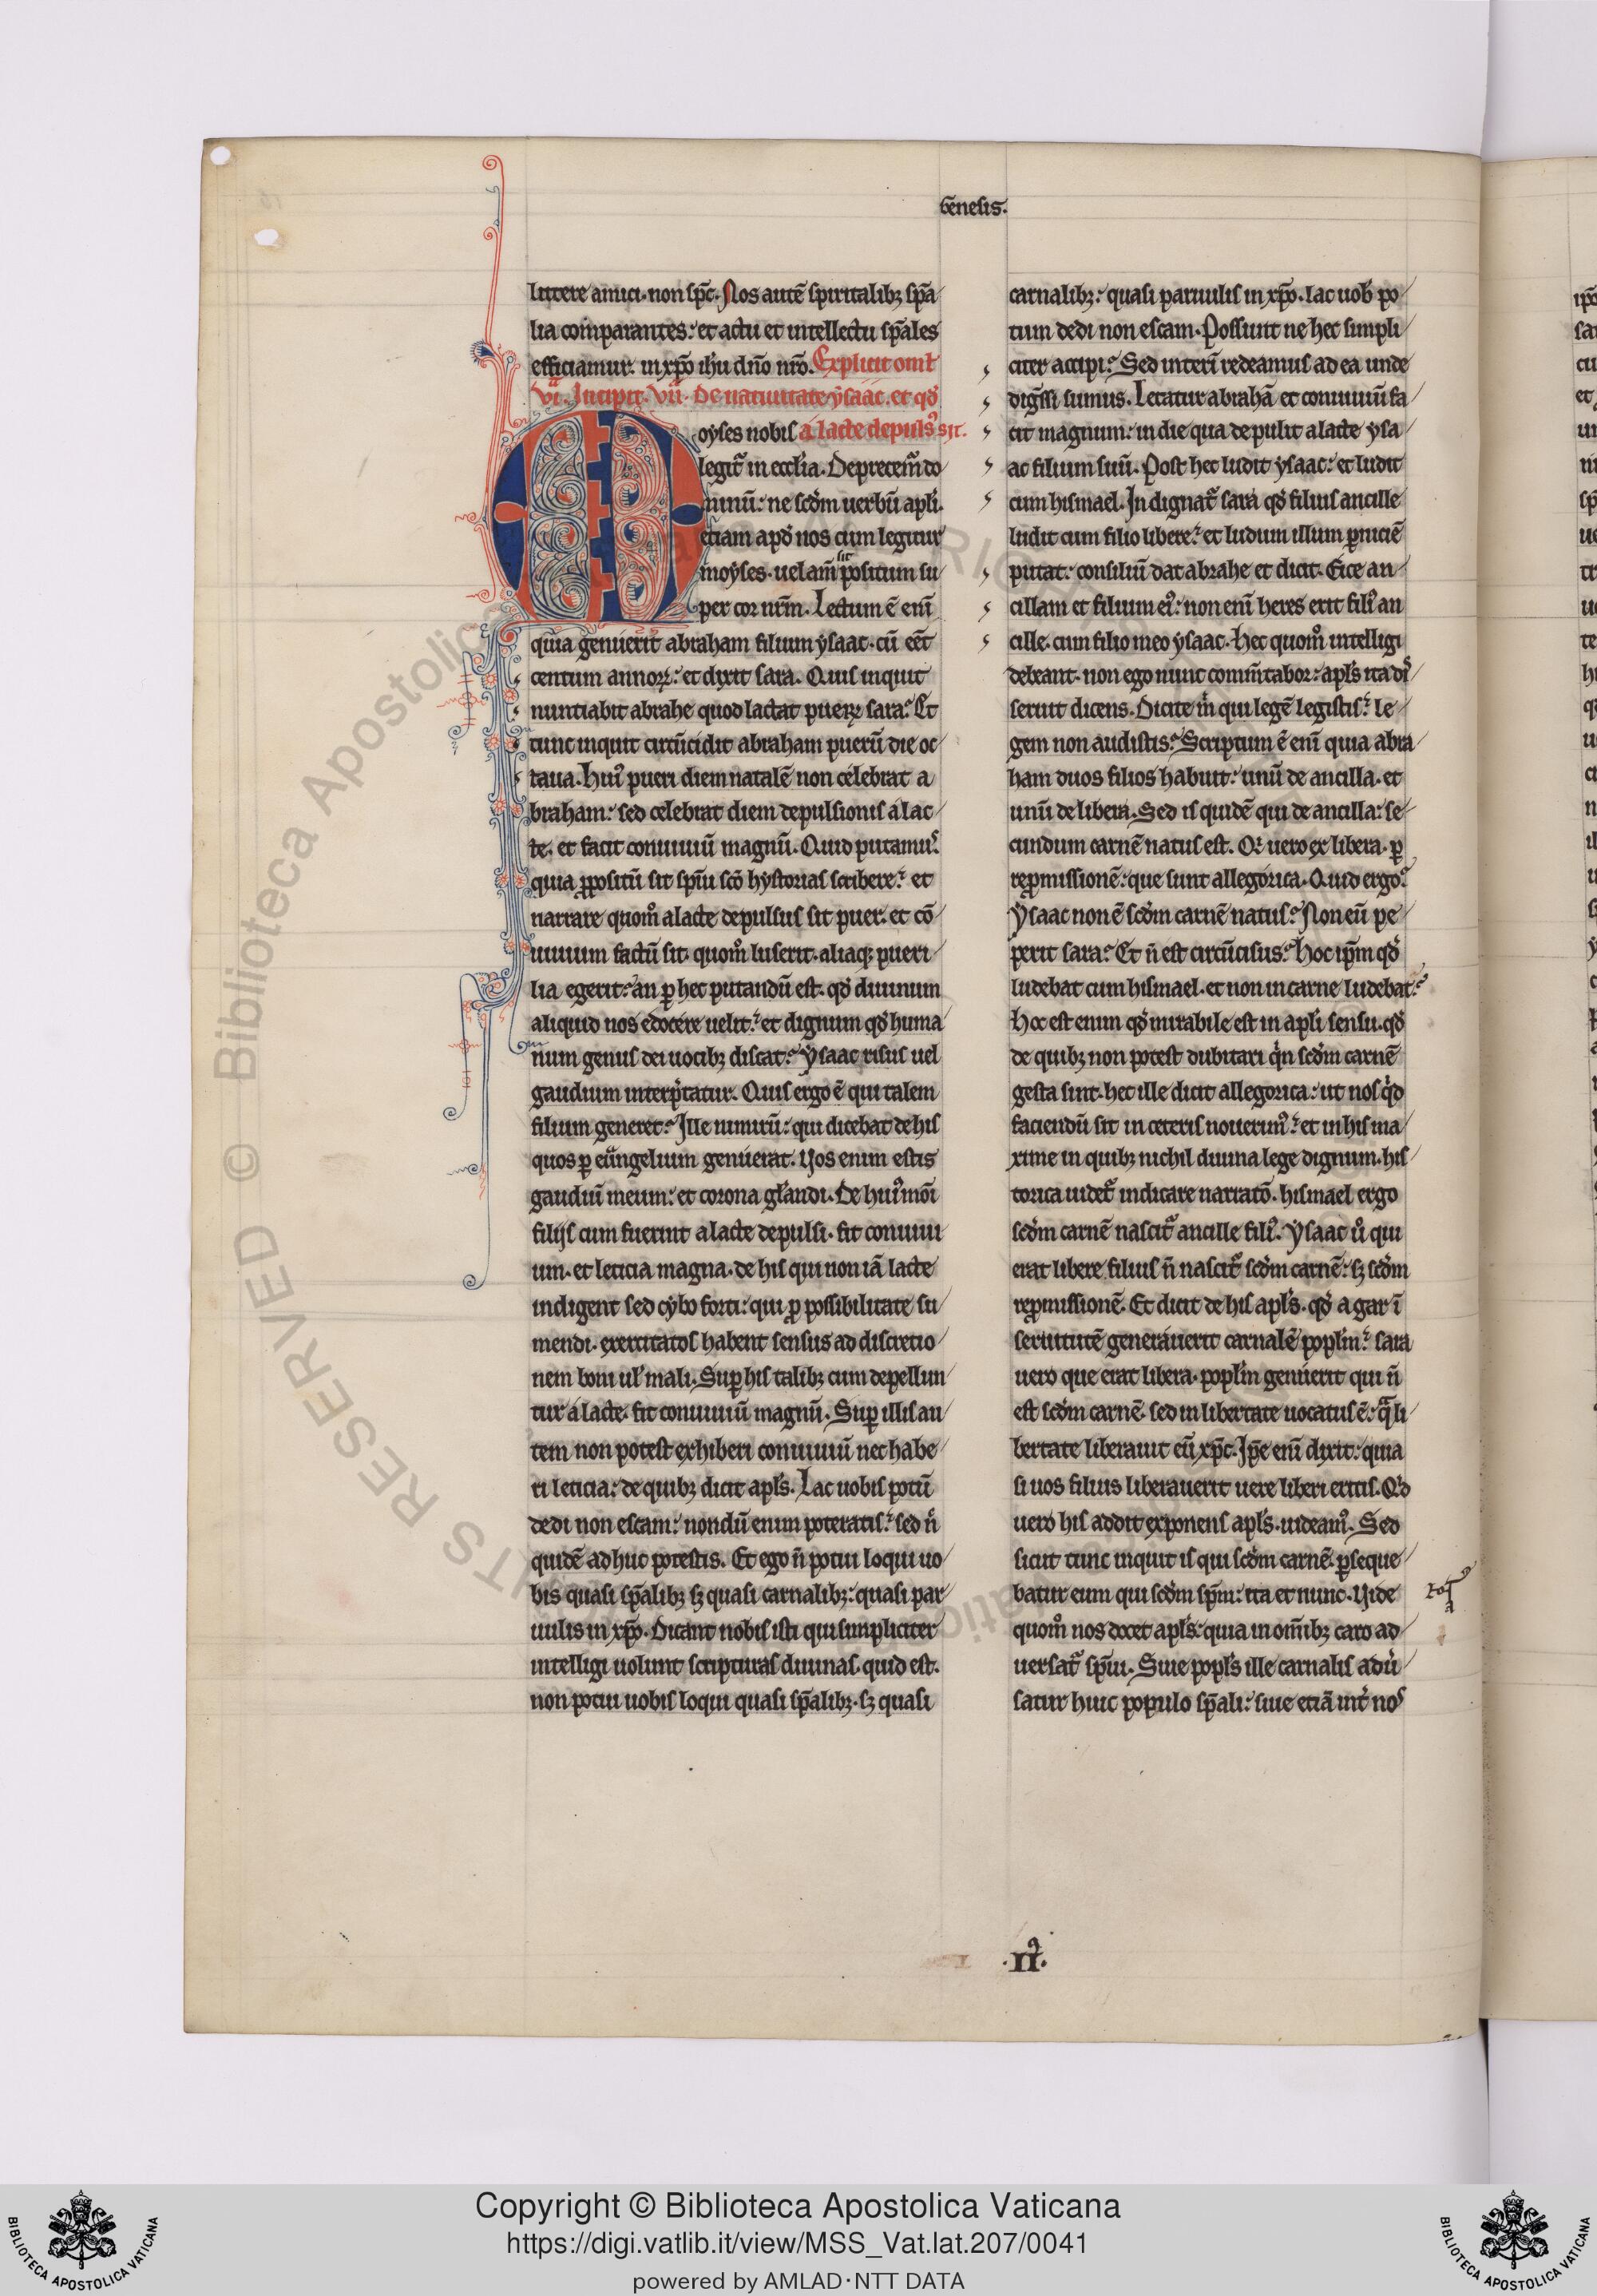 Genesis.
littere amici. non sp̄c. Nos autē spiritalibꝫ sp̄a
lia comparantes: et actu et intellectu sp̄ales
efficiamur. in xp̄o ih̄u dn̄o nr̄o. Explicit oml̄
vi. Incipit. vii. De natiuitate ysaac. et qd̕
oyses nobis a lacte depulsꝰ sit.
legit᷑ in eccl̄ia. Deprecem᷑ do
minū: ne scd̕m uerbū apl̄i.
etiam apd̕ nos cum legitur
moyses. uelam̄ positum sit su
per cor nr̄m. Lectum ē enī
quia genuerit abraham filium ysaac. cū eēt
centum annoꝝ: et dixit sara. Quis inquit
nuntiabit abrahe quod lactat pueꝝ sara? Et
tunc inquit circūcidit abraham puerū die oc
taua. Huiꝰ pueri diem natalē non celebrat a
braham: sed celebrat diem depulsionis a lac
te. et facit conuiuiū magnū. Quid putamus?
quia ꝓpositū sit sp̄iu sc̄o hystorias scribere? et
narrare quom̊ a lacte depulsus sit puer. et cō
uiuium factū sit. quom̊ luserit. aliaqꝫ pueri
lia egerit? an ꝑ hec putandū est. qd̕ diuinum
aliquid nos edocere uelit? et dignum qd̕ huma
num genus dei uocibꝫ discat? Ysaac risus uel
gaudium interp̄tatur. Quis ergo ē qui talem
filium generet? Ille nimirū: qui dicebat de his
quos ꝑ euangelium genuerat. Vos enim estis
gaudiū meum: et corona gl̄andi. De huiꝰmōi
filiis cum fuerint a lacte depulsi. fit conuiui
um. et leticia magna. de his qui non iā lacte
indigent sed cybo forti: qui ꝓ possibilitate su
mendi. exercitatos habent sensus ad discretio
nem boni ul̄ mali. Suꝑ his talibꝫ cum depellun
tur a lacte. fit conuiuiū magnū. Suꝑ illis au
tem non potest exhiberi conuiuiū nec habe
ri leticia: de quibꝫ dicit apl̄s. Lac uobis potū
dedi non escam: nondū enim poteratis? sed n̄
quidē adhuc potestis. Et ego n̄ potui loqui uo
bis quasi sp̄alibꝫ sꝫ quasi carnalibꝫ: quasi par
uulis in xp̄o. Dicant nobis isti qui simpliciter
intelligi uolunt scripturas diuinas. quid est.
non potui uobis loqui quasi sp̄alibꝫ. sꝫ quasi
carnalibꝫ: quasi paruulis in xp̄o. Lac uob̄ po
tum dedi non escam. Possunt ne hec simpli
citer accipi? Sed interī redeamus ad ea unde
digr̄ssi sumus. Letatur abrahā et conuiuiū fa
cit magnum: in die qua depulit a lacte ysa
ac filium suū. Post hec ludit ysaac: et ludit
cum hismael. Indignat᷑ sara qd̕ filius ancille
ludit cum filio libere: et ludum illum ꝑniciē
putat: consiliū dat abrahe et dicit. Eice an
cillam et filium eiꝰ: non enī heres erit filiꝰ an
cille. cum filio meo ysaac. Hec quom̊ intelligi
debeant. non ego nunc comm̄tabor: apl̄s ita di
seruit dicens. Dicite m̄ qui legē legistis? le
gem non audistis? Scriptum ē enī quia abra
ham duos filios habuit: unū de ancilla. et
unū de libera. Sed is quidē qui de ancilla: se
cundum carnē natus est. Qi uero ex libera. ꝑ
reꝓmissionē: que sunt allegorica. Quid ergo?
Ysaac non ē scd̕m carnē natus? Non eū pe
perit sara? Et n̄ est circūcisus? Hoc ip̄m qd̕
ludebat cum hismael. et non in carne ludebat?
Hoc est enim qd̕ mirabile est in apl̄i sensu. qd̕
de quibꝫ non potest dubitari qin scd̕m carnē
gesta sint. hec ille dicit allegorica: ut nos qid
faciendū sit in ceteris nouerimꝰ? et in his ma
xime in quibꝫ nichil diuina lege dignum. his
torica uidet᷑ indicare narratō. Hismael ergo
scd̕m carnē nascit᷑ ancille filiꝰ. Ysaac u̇ qui
erat libere filius n̄ nascit᷑ scd̕m carnē: sꝫ scd̕m
reꝓmissionē. Et dicit de his apl̄s. qd̕ agar ī
seruitutē generauerit carnalē popl̄m? sara
uero que erat libera. popl̄m genuerit qui n̄
est scd̕m carnē. sed in libertate uocatus ē: qa li
bertate liberauit eū xp̄c. Ip̄e enī dixit: quia
si uos filius liberauerit uere liberi eritis. Qid
uero his addit exponens apl̄s. uideamꝰ. Sed
sicut tunc inquit is qui scd̕m carnē. ꝑseque
batur eum qui scd̕m sp̄m: ita et nunc. Vide
quom̊ nos docet apl̄s: quia in om̄ibꝫ caro ad
uersat᷑ sp̄iui. Siue popl̄s ille carnalis adu̇
satur huic populo sp̄ali: siue etiā int̄ nos
.IIꝰ.
RESERVED © Biblioteca Apostolica
Copyright © Biblioteca Apostolica Vaticana
https://digi.vatlib.it/view/MSS_Vat.lat.207/0041
powered by AMLAD·NTT DATA
BIBLIOTECA APOSTOLICA VATICANA
BIBLIOTECA APOSTOLICA VATICANA